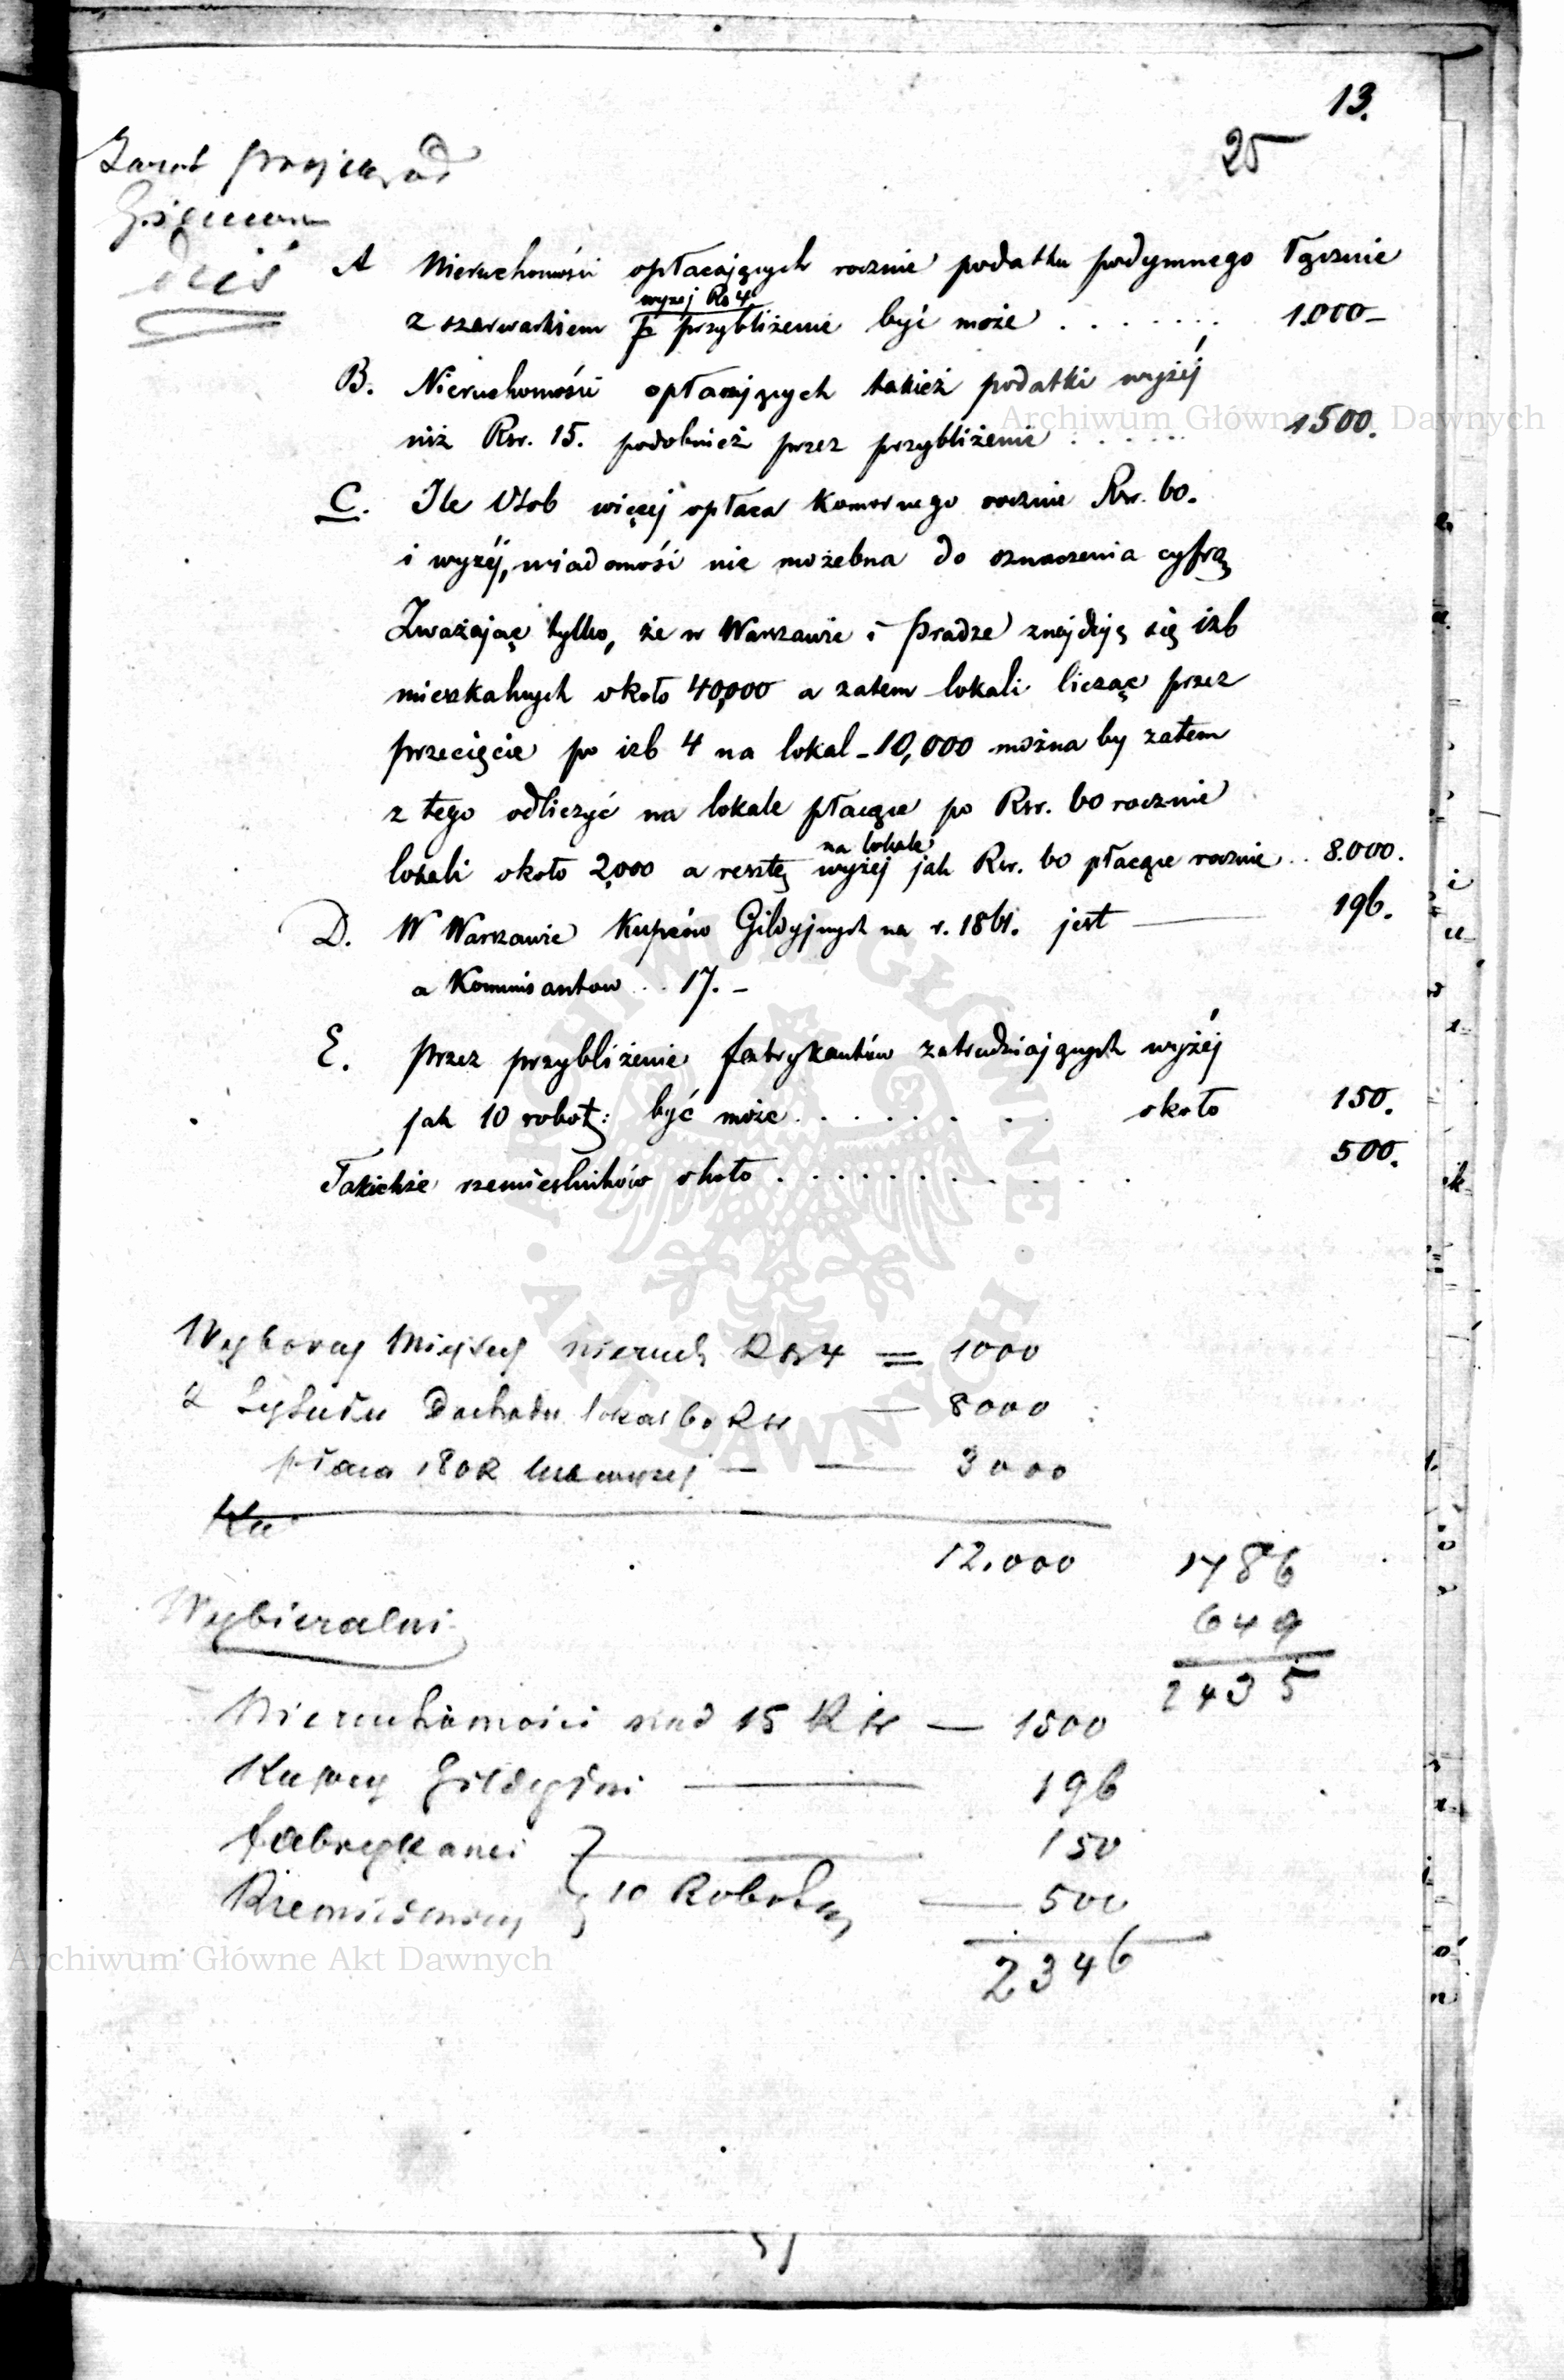 13.
25
dziś
A Nieruchomości opłacających rocznie podatku podymnego łącznie
wyżej Rs 4
z szarwarkiem p. przybliżenie być może . . . . . . . 1.000 –
B. Nieruchomości opłacających takież podatki wyżéj
niż Rsr. 15. podobnież przez przybliżenie . . . . . 1500.
C. Ile Osob więcej opłaca komornego rocznie Rsr. 60.
i wyżéj, wiadomość nie możebna do oznaczenia cyfrą
Zważając tylko, że w Warszawie i Pradze znajdują się izb
mieszkalnych około 40,000 a zatem lokali licząc przez
przecięcie po izb 4 na lokal – 10,000 można by zatem
z tego odliczyć na lokale płacące po Rsr. 60 rocznie
na lokale
lokali około 2,000 a resztę wyżej jak Rsr. 60 płacące rocznie . . 8.000.
D. W Warszawie Kupców Gildyjnych na r. 1861. jest — 196.
a Kommisantow . . 17. –
E. Przez przybliżenie fabrykantów zatrudniających wyżéj
jak 10 robot: być może . . . . . . . około 150.
Takichże rzemieślników około . . . . . . . . . . . 500.
Wyborcy Mieyscy nieruch Rsr 4 = 1000
z tytułu Dochodu lokal 60 Rsr — 8000
płaca 180 R wyzej — — 3000
12.000
1786
649
2435
Wybieralni
Nieruchomości nad 15 Rsr — 1500
Kupcy Gildyjni — 196
Fabrykanci } — 150
Rzemieślnicy } 10 Robotn — 500
2346
Archiwum Główne Akt Dawnych
Archiwum Główne Akt Dawnych
ARCHIWUM GŁÓWNE · AKT DAWNYCH ·